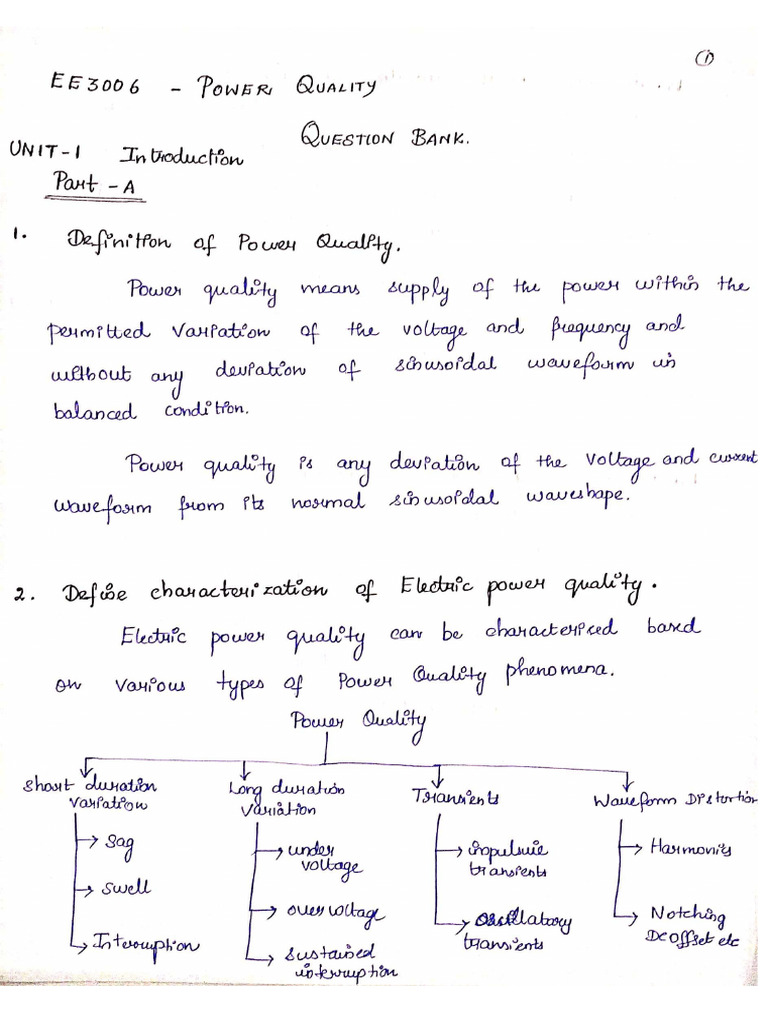 ①
EE3006 - POWER QUALITY
QUESTION BANK.
UNIT-1 Introduction
Part - A
1. Definition of Power Quality.
Power quality means supply of the power within the
permitted variation of the voltage and frequency and
without any deviation of sinusoidal waveform in
balanced condition.
Power quality is any deviation of the voltage and current
waveform from its normal sinusoidal waveshape.
2. Define characterization of Electric power quality.
Electric power quality can be characterised based
on various types of Power Quality phenomena.
Power Quality
Short duration variation
Sag
Swell
Interruption
Long duration variation
under voltage
over voltage
sustained interruption
Transients
impulsive transients
oscillatory transients
Waveform Distortion
Harmonics
Notching
DC offset etc